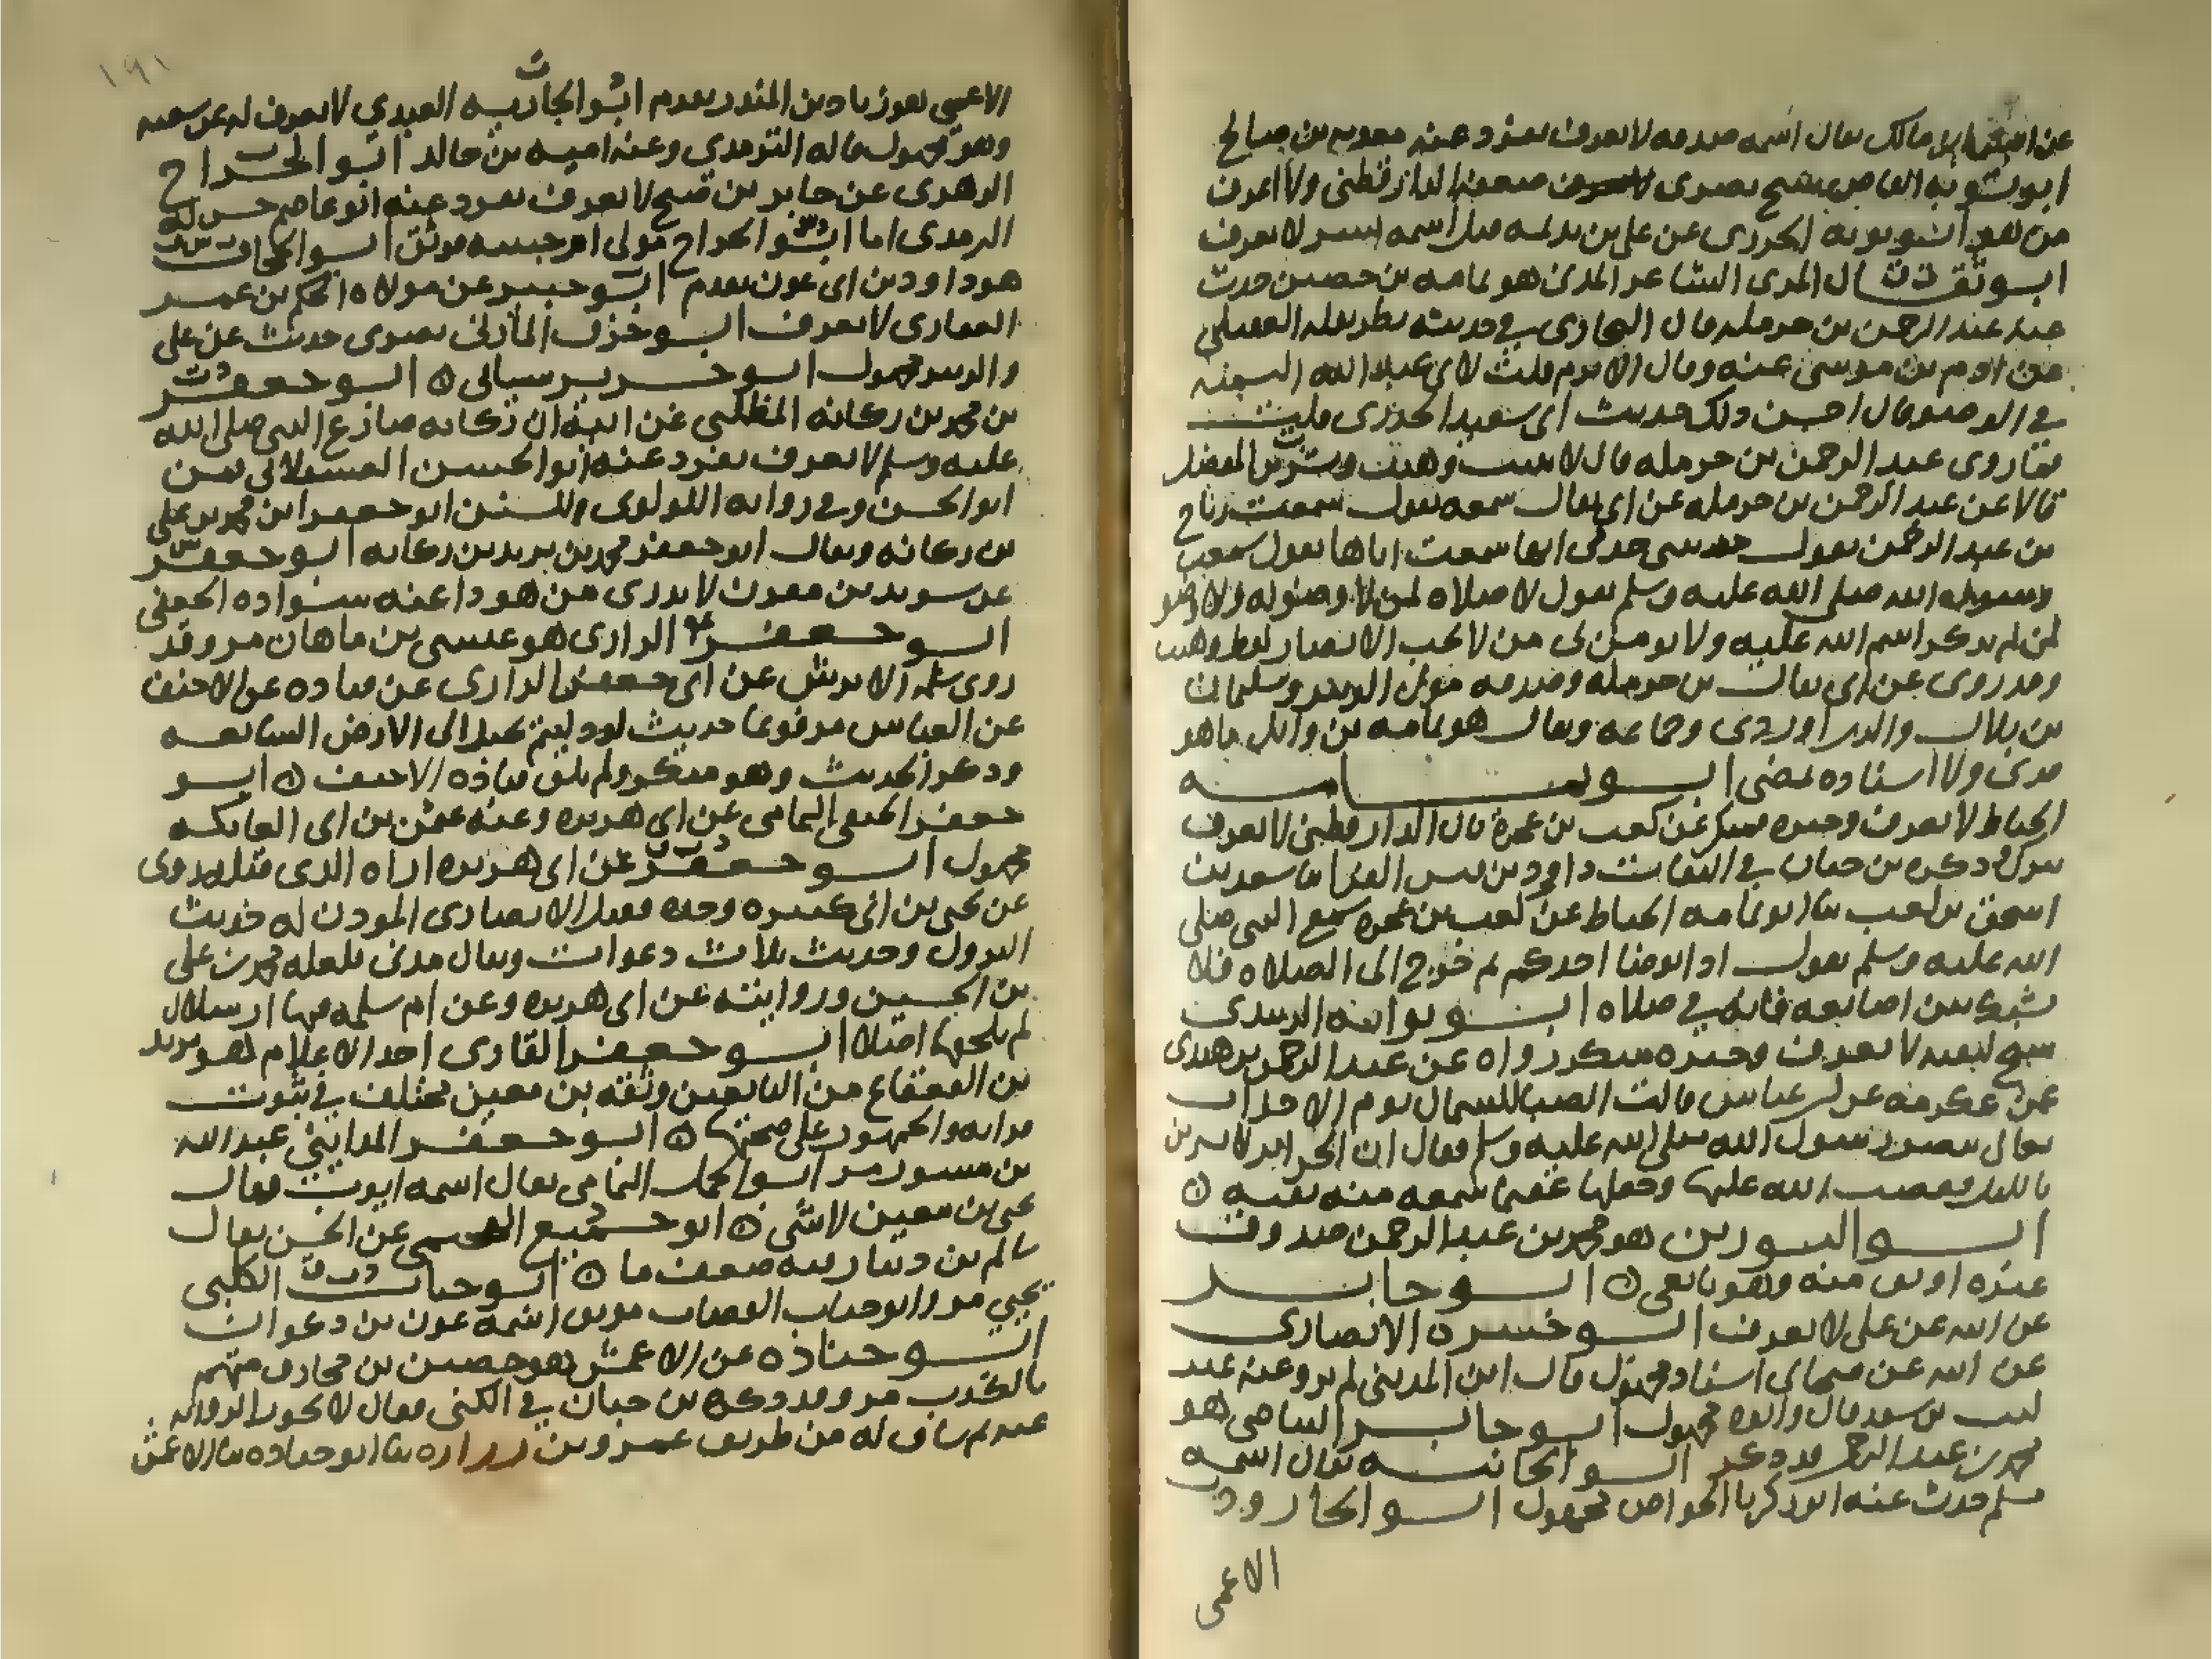 ابو ثوبه القاص بصري ضعفه الدارقطني ولا اعرف
من هو ابو ثويه الجزري عن علي بن بذيمه قيل اسمه لا يعرف
ابو ثفال المري الشاعر المدني هو ثمامه بن حصين حدث
عنه عبد الرحمن بن حرمله قال البخاري في حديثه نظر نقله العقيلي
عن ادم بن موسى عنه وقال الاثرم قلت لابي عبد الله التسميه
في الوضو قال احسن ذلك حديث ابي سعيد الخدري قلت
فما روى عبد الرحمن بن حرمله قال لا يثبت وهيب وبشر بن المفضل
قالا عن عبد الرحمن بن حرمله عن ابي ثفال سمعه يقول سمعت رباح
بن عبد الرحمن يقول حدثتني جدتي انها سمعت اباها يقول سمعت
رسول الله صلى الله عليه وسلم يقول لا صلاه لمن لا وضو له ولا وضو
لمن لم يذكر اسم الله عليه ولا يومن بي من لا يحب الانصار لفظ وهيب
وقد روى عن ابي ثفال بن حرمله وصدقه مولى الزبير وسليمان
بن بلال والدراوردي وجماعه ويقال هو ثمامه بن وائل ما هو
ولا اسناده يمضي ابو ثمامه
الحناط لا يعرف وخبره منكر عن كعب بن عجرة قال الدارقطني لا يعرف
يترك وذكره بن حبان في الثقات داود بن قيس الفرا ثنا سعد بن
اسحق بن كعب ثنا ابو ثمامه الحناط عن كعب بن عجره سمع النبي صلى
الله عليه وسلم يقول اذا توضا احدكم ثم خرج الى الصلاه فلا
يشبك بين اصابعه فانه في صلاه ابو ثوابه الرسدي
شيخ لبقيه لا يعرف وخبره منكر رواه عن عبد الرحمن بن هندي
عن عكرمه عن بن عباس قالت الصبا للشمال يوم الاحزاب
تعالي ننصر رسول الله صلى الله عليه وسلم فقال ان الحراير لا يسرين
بالليل فغضب الله عليها وجعلها عقيما سمعه منه بقيه
ابو الثورين هو محمد بن عبد الرحمن صدوق
غيره اوثق منه وهو تابعي ابو جابر
عن ابيه عن علي لا يعرف ابو جبيره الانصاري
عن ابيه عن صحابي اسناد مجهول قال ابن المديني لم يرو عنه غير
ليث بن سعد قال وابوه مجهول ابو جابر البياضي هو
محمد بن عبد الرحمن قد ذكر ابو الجابيه يقال اسمه
مسلم حدث عنه ابو زكريا الخواص مجهول ابو الجارود
الاعمى
الاعمى هو زياد بن المنذر تقدم ابو الجاريه العبدي لا يعرف له عن شعبه
وهو مجهول قاله الترمذي وعنه اميه بن خالد ابو الجراح
المهري عن جابر بن صبح لا يعرف تفرد عنه ابو عاصم حسن له
الترمذي اما ابو الجراح مولى ام حبيبه فوثق ابو الجحاف
هو داود بن ابي عوف تقدم ابو جبير عن مولاه الحكم بن عمرو
الغفاري لا يعرف ابو جزف المازني بصري حدث عن علي
والزبير مجهول ابو جرير سياتي ابو جعفر
بن محمد بن ركانه المطلبي عن ابيه ان ركانه صارع النبي صلى الله
عليه وسلم لا يعرف تفرد عنه ابو الحسن العسقلاني فمن
ابو الحسن وفي روايه اللولوي للسنن ابو جعفر ابن محمد بن علي
بن ركانه ويقال ابو جعفر محمد بن يزيد بن ركانه ابو جعفر
عن سويد بن مقرن لا يدرى من هو ذا عنه سواده الجعفي
ابو جعفر الرازي هو عيسى بن ماهان مر وقد
روى سلمه الابرش عن ابي جعفر الرازي عن قتاده عن الاحنف
عن العباس مرفوعا حديث لو دليتم بحبل الى الارض السابعه
وذكر الحديث وهو منكر ولم يلق قتاده الاحنف ابو
جعفر الحنفي اليمامي عن ابي هريره وعنه عثمن بن ابي العاتكه
مجهول ابو جعفر عن ابي هريره اراه الذي قبله روى
عن يحيى بن ابي كثير وحده فقيل الانصاري الموذن له حديث
النزول وحديث ثلاث دعوات ويقال مدني فلعله محمد بن علي
بن الحسين وروايته عن ابي هريره وعن ام سلمه فيها ارسال
لم يلحقها اصلا ابو جعفر القاري احد الاعلام هو يزيد
بن القعقاع من التابعين وثقه بن معين مختلف في ثبوت
قراته والجمهور على صحتها ابو جعفر المدايني عبد الله
بن مسور مر ابو الجمل اليمامي يقال اسمه ايوب فقال
يحيى بن معين لا شي ابو جميع الهجيمي عن الحسن يقال
سالم بن دينار فيه ضعف ما ابو جناب الكلبي
يحيى مر وابو جناب القصاب موثق اسمه عون بن ذكوان
ابو جناده عن الاعمش هو حصين بن مخارق متهم
بالكذب مر وقد ذكره بن حبان في الكنى فقال لا يجوز الروايه
عنه ثم ساق له من طريق عمرو بن زراره ثنا ابو جناده ثنا الاعمش